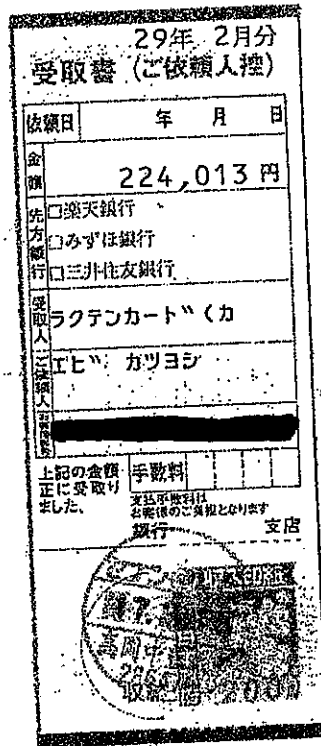 29年 2月分
受取書（ご依頼人控）
依頼日 年 月 日
金額 224,013 円
先方銀行 □楽天銀行
□みずほ銀行
□三井住友銀行
受取人 ラクテンカード゛(カ
ご依頼人 エビ゛ カツヨシ
上記の金額正に受取りました。 手数料
支払手数料はお客様のご負担となります
銀行 支店